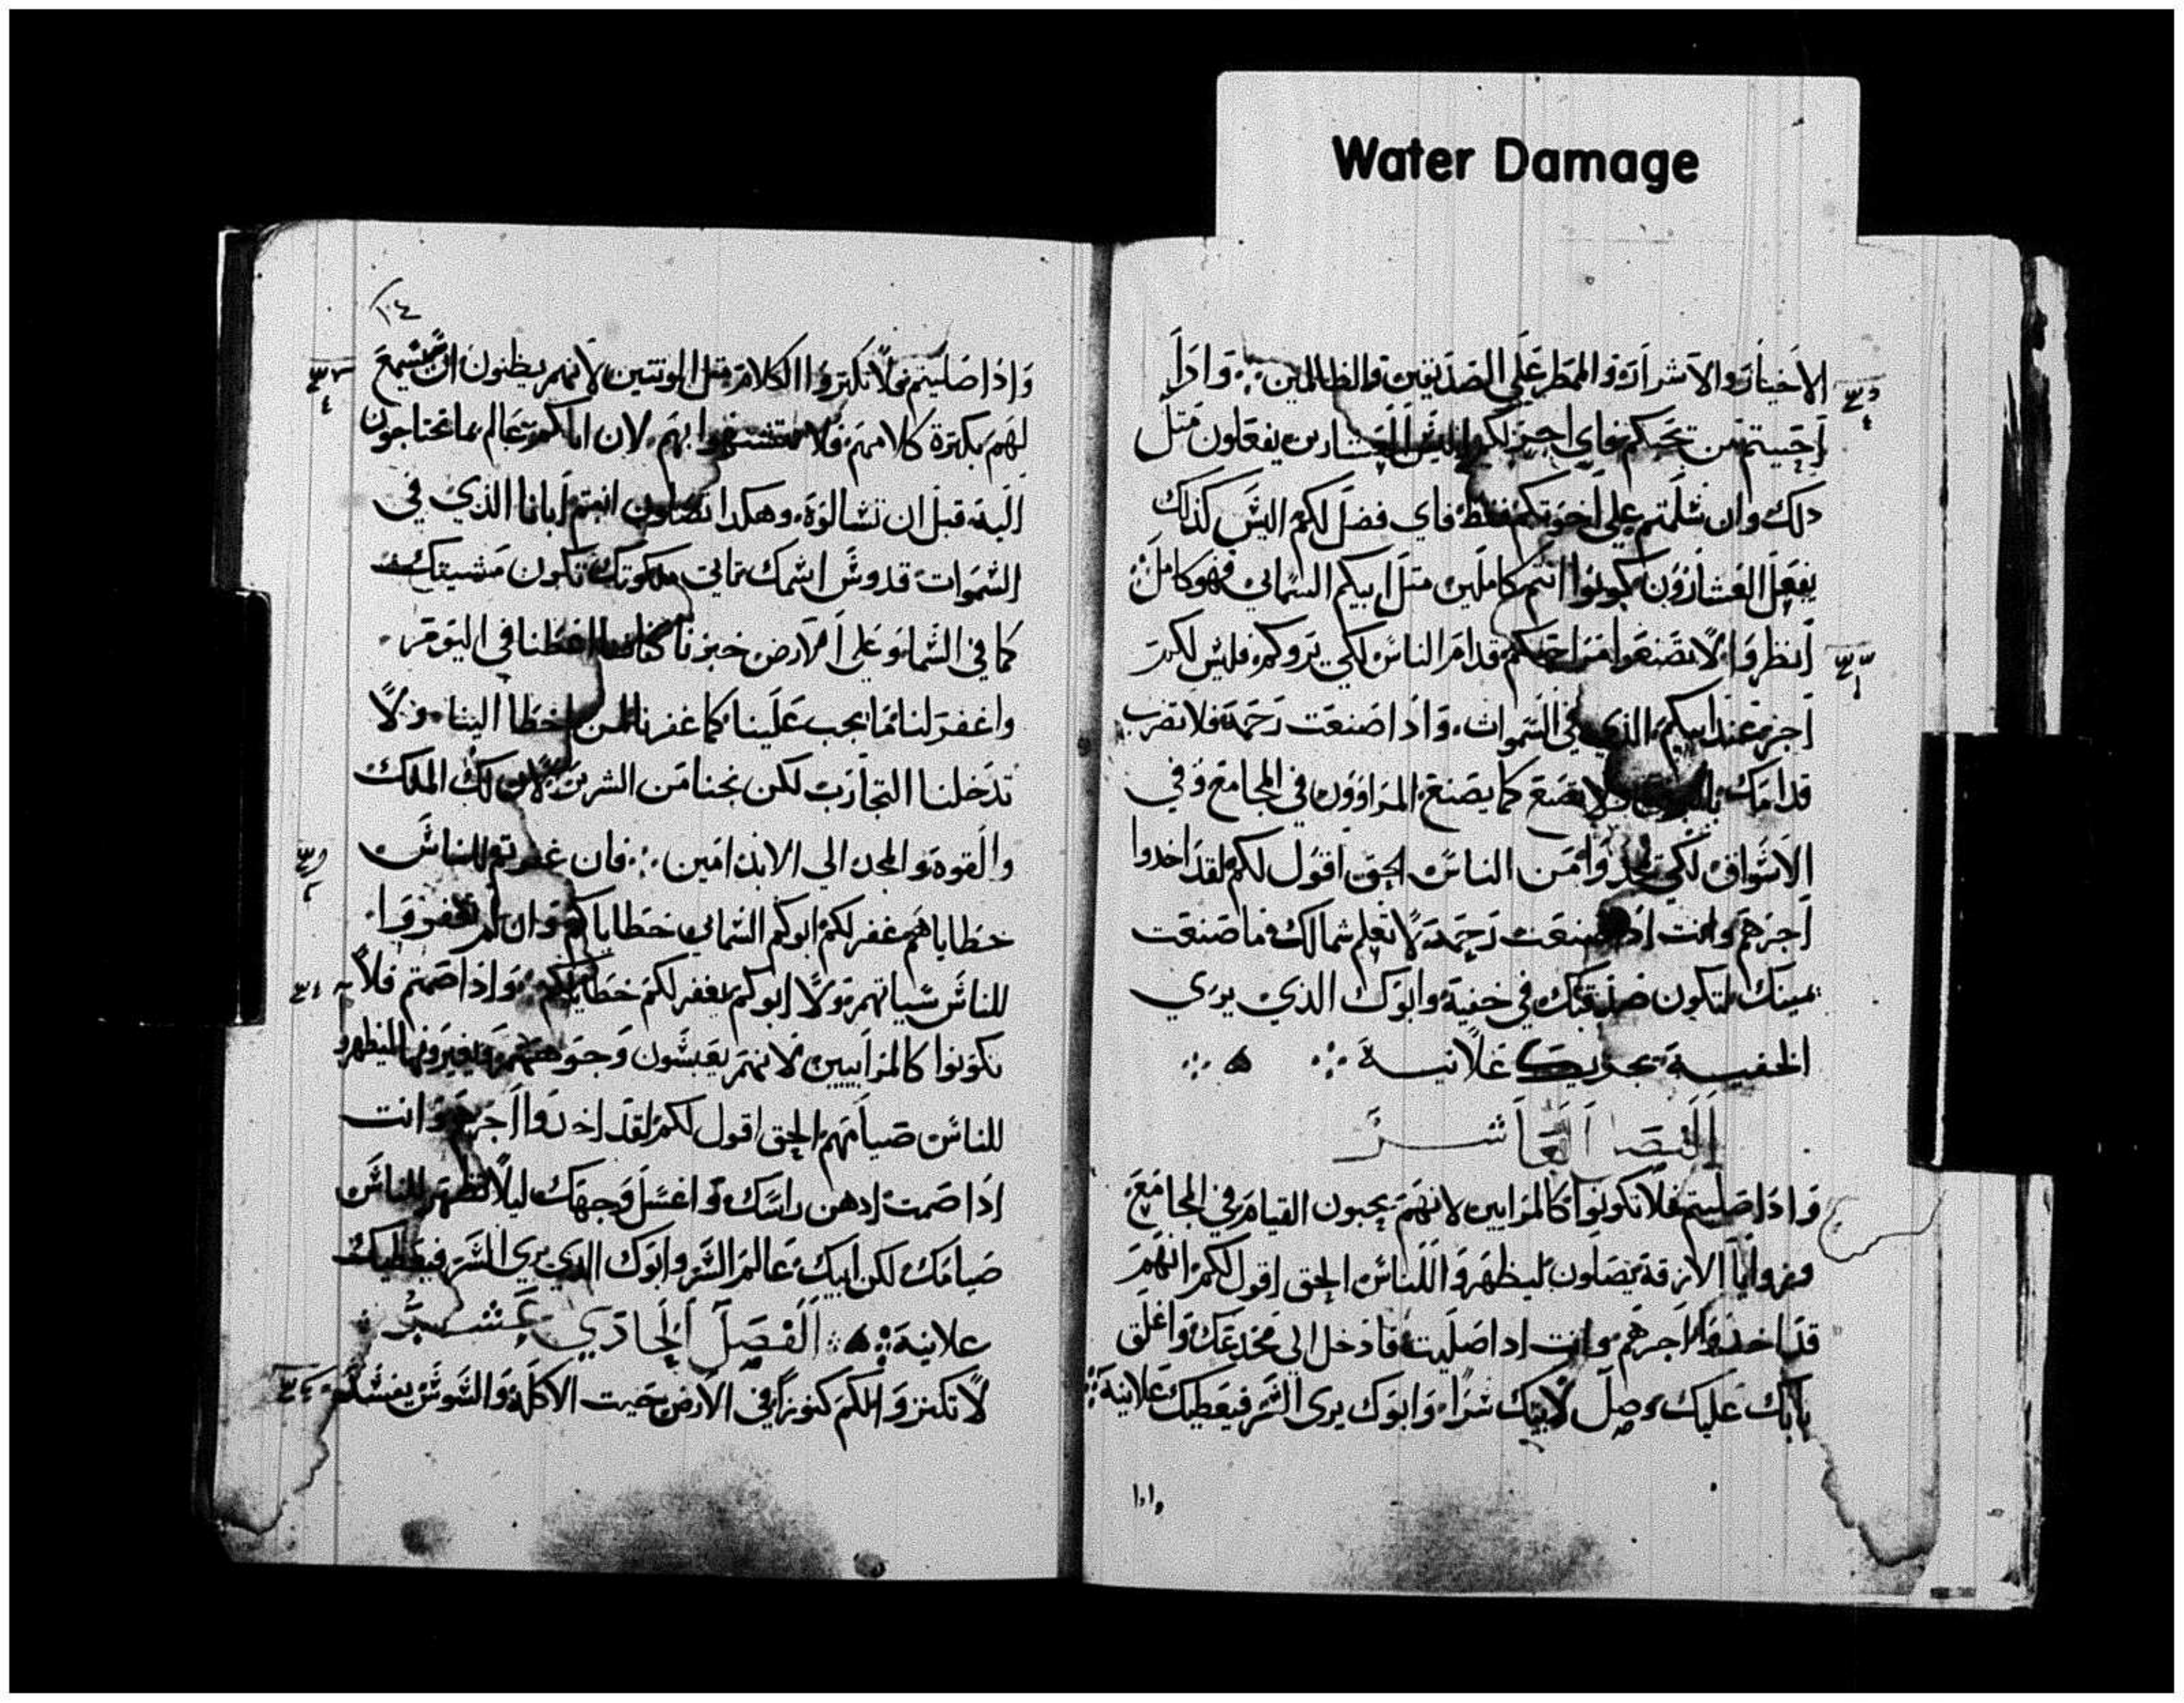 Water Damage
الاخيار والاشرار والمطر علي الصديقين والظالمين ⁘ واذا
احببتم من يحبكم فاي اجر لكم اليس العشارين يفعلون متل
دلك وان سلمتم علي اخوتكم فقط فاي فضل لكم اليس كذلك
يفعل العشارون كونوا انتم كاملين متل ابيكم السماي فهو كامل ⁘
انظروا لا تصنعوا مراحمكم قدام الناس لكي يروكم فليس لكم
اجر عند ابيكم الذي في السموات واذا صنعت رحمة فلا تضرب
قدامك ولا تصنع كما يصنع المراوون في المجامع وفي
الاسواق لكي من الناس الحق اقول لكم لقد اخدوا
اجرهم وانت اذا صنعت رحمة لا تعلم شمالك ما صنعت
يمينك لتكون صدقتك في خفية وابوك الذي يري
الخفية يجزيك علانية ⁘ ه ⁘
الفصل العاشر
واذا صليتم فلا تكونوا كالمرايين لانهم يحبون القيام في المجامع
وزوايا الازقة يصلون ليظهروا للناس الحق اقول لكم انهم
قد اخذوا اجرهم وانت اذا صليت فادخل الي مخدعك واغلق
بابك عليك وصل لابيك سرا وابوك يري السر فيعطيك علانية ⁘
واذا
١٠٤
واذا صليتم فلا تكتروا الكلام متل الوتنيين لانهم يظنون ان يسمع
لهم بكترة كلامهم فلا تتشبهوا بهم لان اباكم عالم بما تحتاجون
اليه قبل ان تسالوه وهكدا تصلون انتم ابانا الذي في
السموات قدوس اسمك تاتي ملكوتك تكون مشيتك
كما في السما وعلي الارض خبزنا كفافنا اعطنا في اليوم
واغفر لنا ما يجب علينا كما غفرنا لمن اخطا الينا ولا
تدخلنا التجارب لكن نجنا من الشرير لان لك الملك
والقوة والمجد الي الابد امين ⁘ فان غفرتم للناس
خطاياهم غفر لكم ابوكم السماي خطاياكم وان لم تغفروا
للناس سياتهم ولا ابوكم يغفر لكم خطاياكم واذا صمتم فلا
تكونوا كالمرايين لانهم يعبسون وجوههم ويغيرونها ليظهروا
للناس صيامهم الحق اقول لكم لقد اخدوا اجرهم وانت
اذا صمت ادهن راسك واغسل وجهك ليلا تظهر للناس
صيامك لكن ابيك عالم السر وابوك الذي يري السر فيعطيك
علانية ⁘ ه ⁘ الفصل الحادي عشر ⁘
لا تكنزوا لكم كنوزا في الارض حيت الاكلة والسوس يفسد